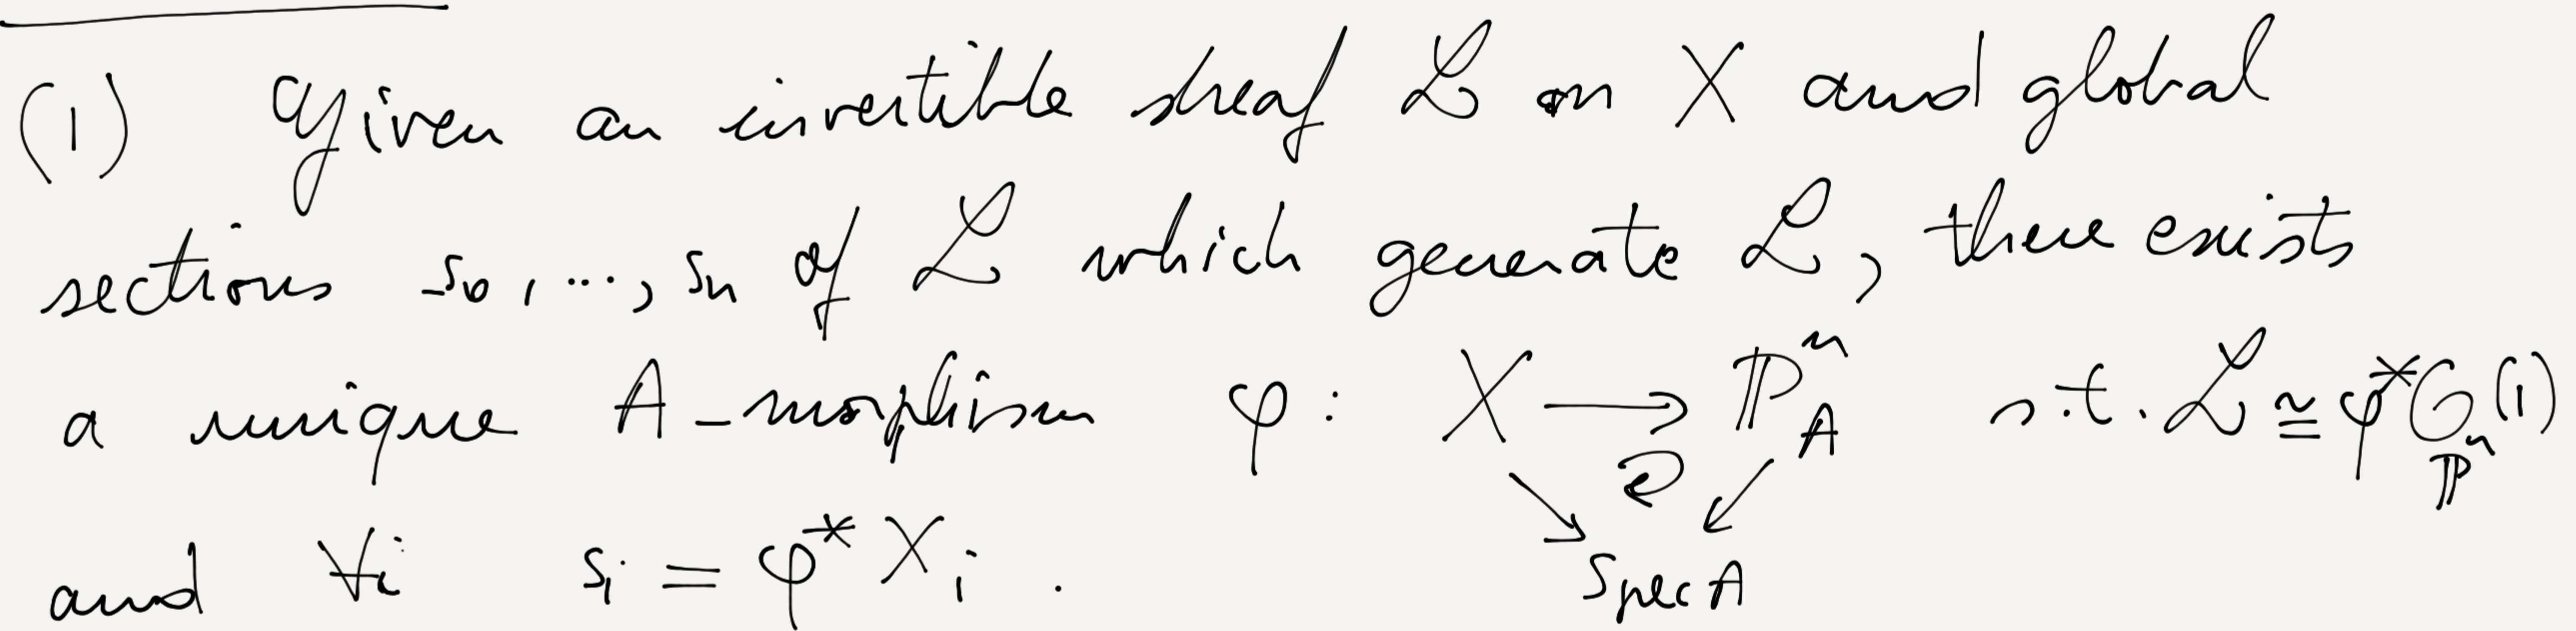 (1) Given an invertible sheaf ℒ on X and global
sections s₀, ..., sₙ of ℒ which generate ℒ, there exists
a unique A-morphism φ: X ⟶ ℙⁿ_A s.t. ℒ ≅ φ*𝒪_ℙⁿ(1)
↘ ↻ ↙
Spec A
and ∀i sᵢ = φ*Xᵢ.